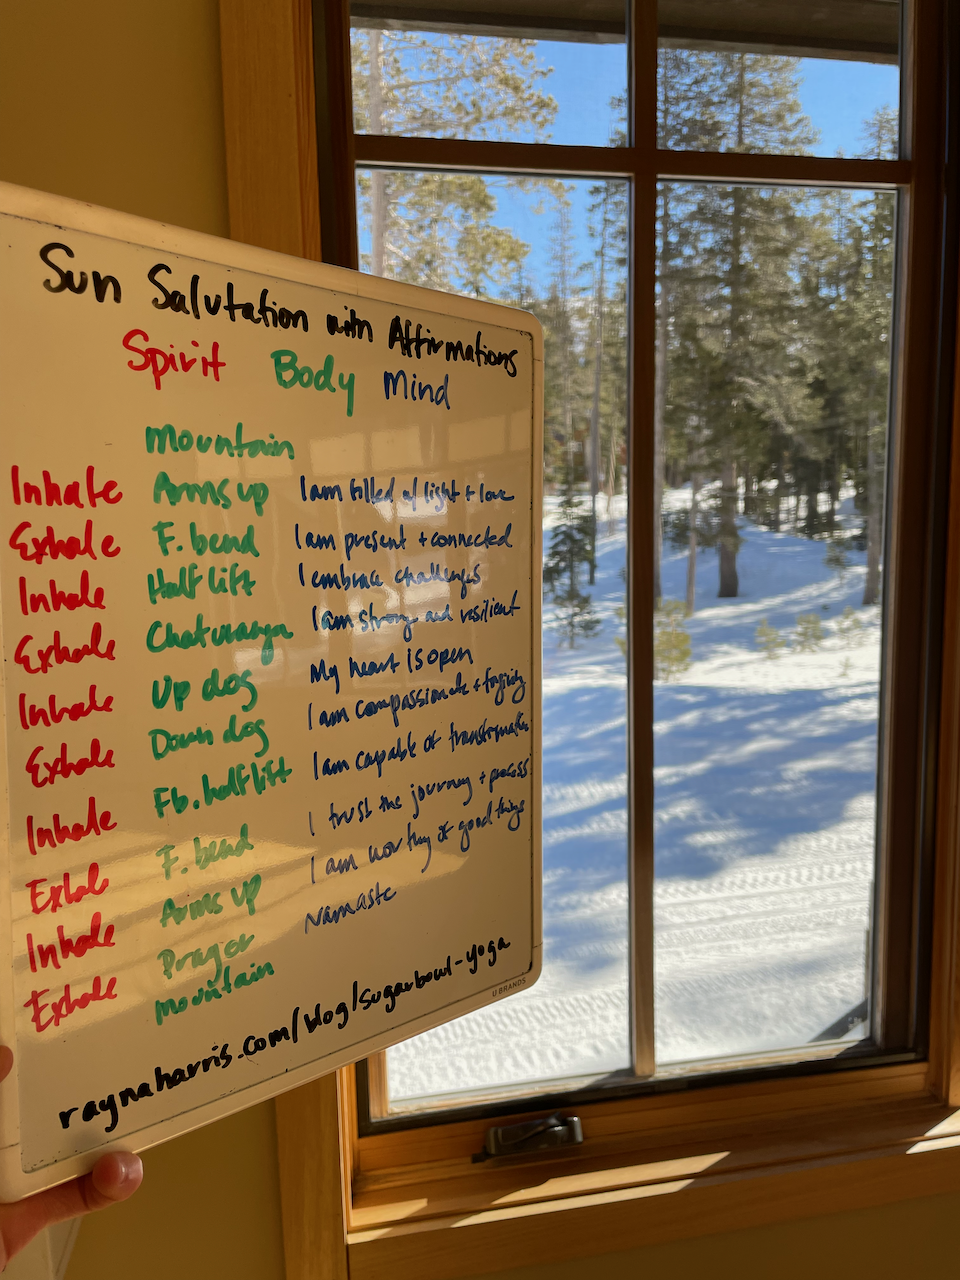 Sun Salutation with Affirmations
Spirit Body Mind
mountain
Inhale Arms up I am filled of light + love
Exhale F. bend I am present + connected
Inhale Half lift I embrace challenges
Exhale Chaturanga I am strong and resilient
Inhale Up dog My heart is open
Exhale Down dog I am compassionate + forgiving
Inhale Fb. half lift I am capable of transformation
Exhale F. bend I trust the journey + process
Inhale Arms up I am worthy of good things
Exhale Prayer Namaste
mountain
raynaharris.com/blog/sugarbowl-yoga
U BRANDS